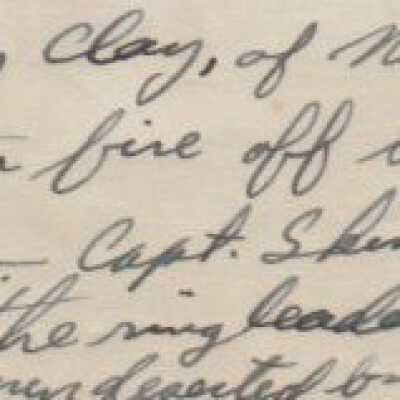 Clay, of
fire off
Capt. Sken
the ringleade
deserted b